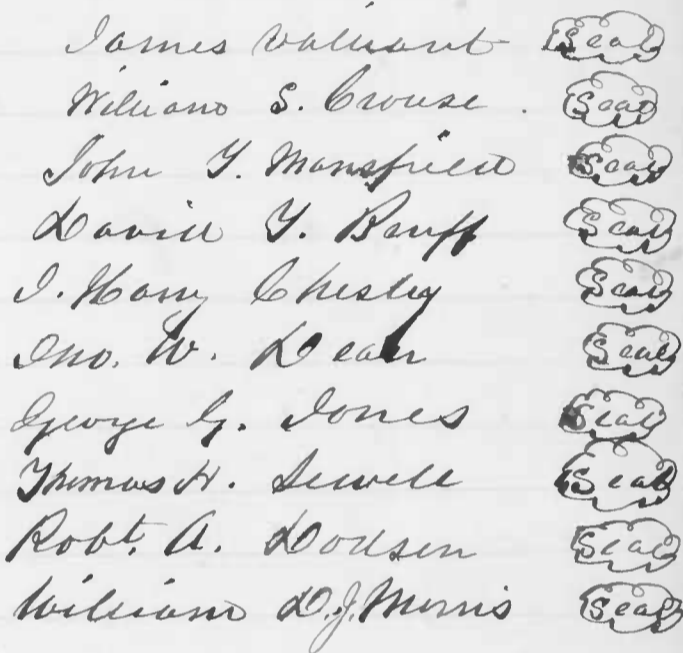 James Valliant Seal
William S. Crouse. Seal
John Y. Mansfield Seal
David Y. Banff Seal
J. Harry Chesley Seal
Jno. W. Dean Seal
George G. Jones Seal
Thomas H. Sewell Seal
Robt. A. Dodson Seal
William D.J. Morris Seal